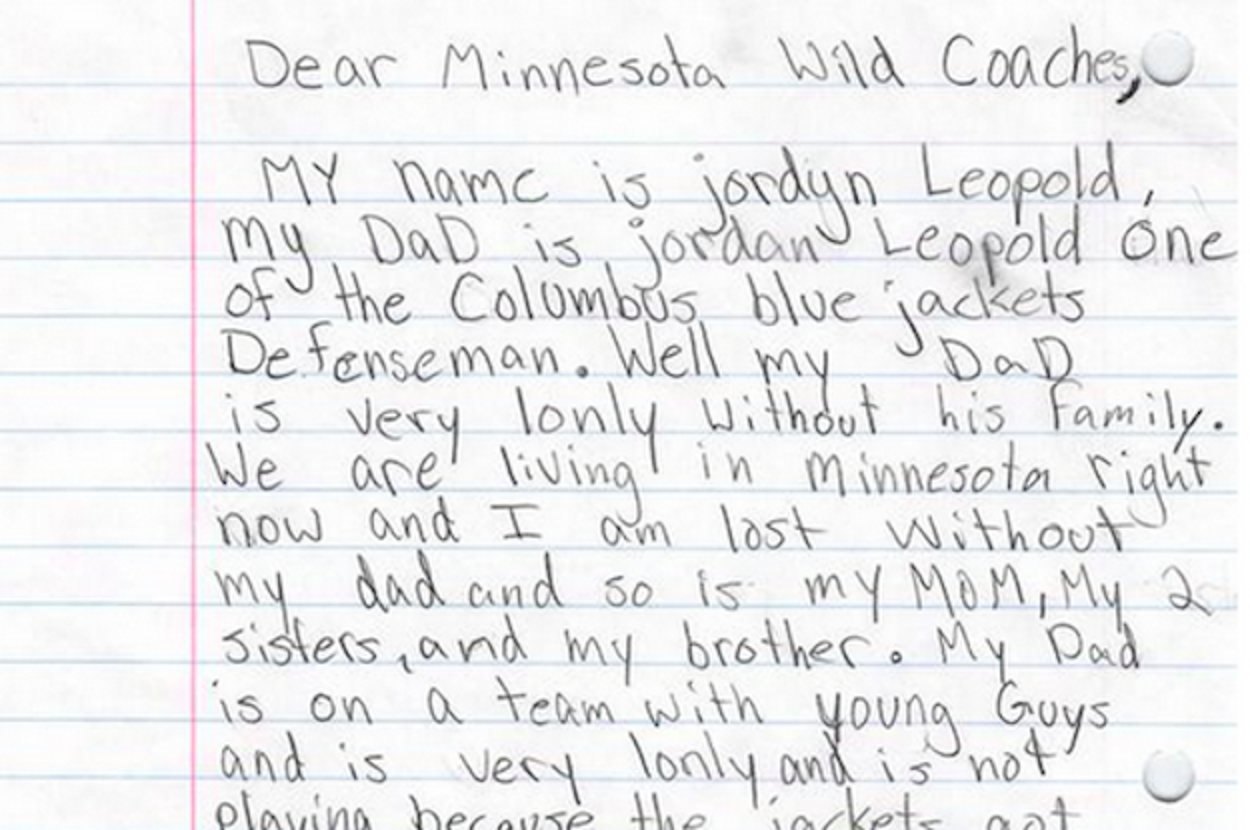 Dear Minnesota Wild Coaches,
MY name is jordyn Leopold,
my DaD is jordan Leopold one
of the Columbus blue jackets
Defenseman. Well my DaD
is very lonly without his family.
We are living in Minnesota right
now and I am lost without
my dad and so is my MOM, My 2
sisters, and my brother. My Dad
is on a team with young Guys
and is very lonly and is not
playing because the jackets got